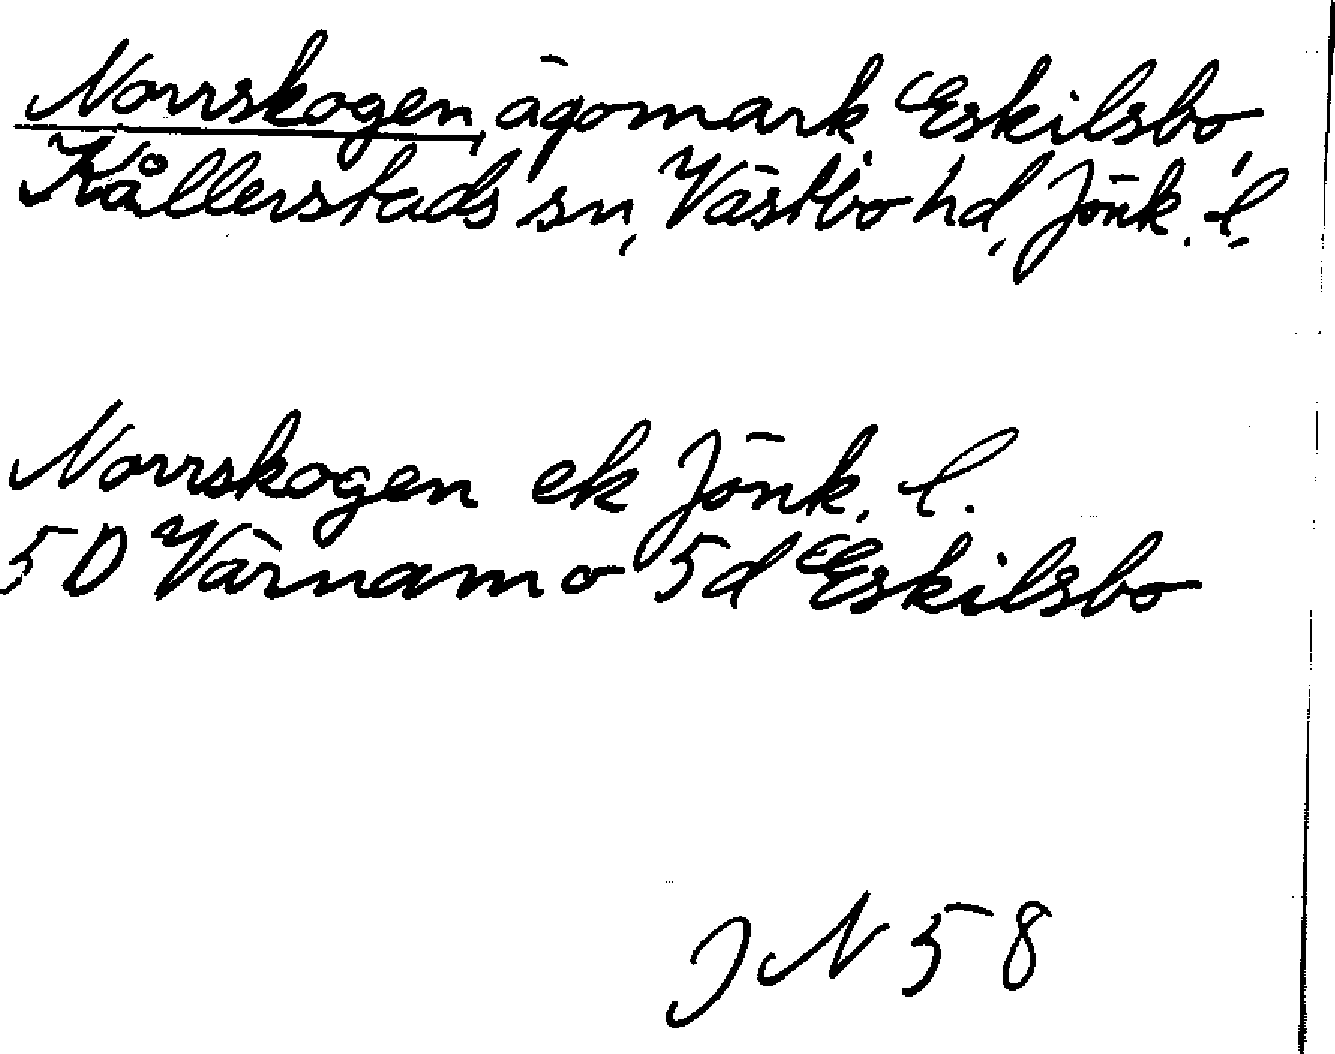 Norrskogen, ägomark Eskilsbo,
Kållerstads sn, Västbo hd, Jönk. l.
Norrskogen ek Jönk. l.
5D Värnamo 5d Eskilsbo
JN58